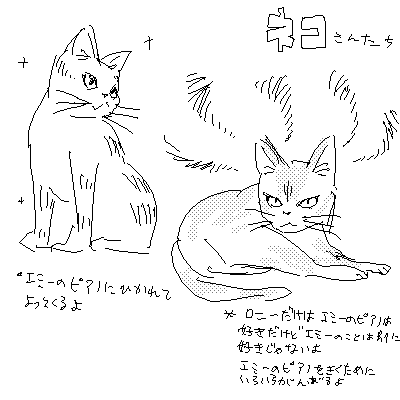 ネコさんたち
・エミーのピアノにひかれて
よってくるよ
※ ロニーだけは エミーのピアノは
好きだけど エミーのことは別に
好きじゃないよ
エミーのピアノをきくために
いろいろがんばるよ